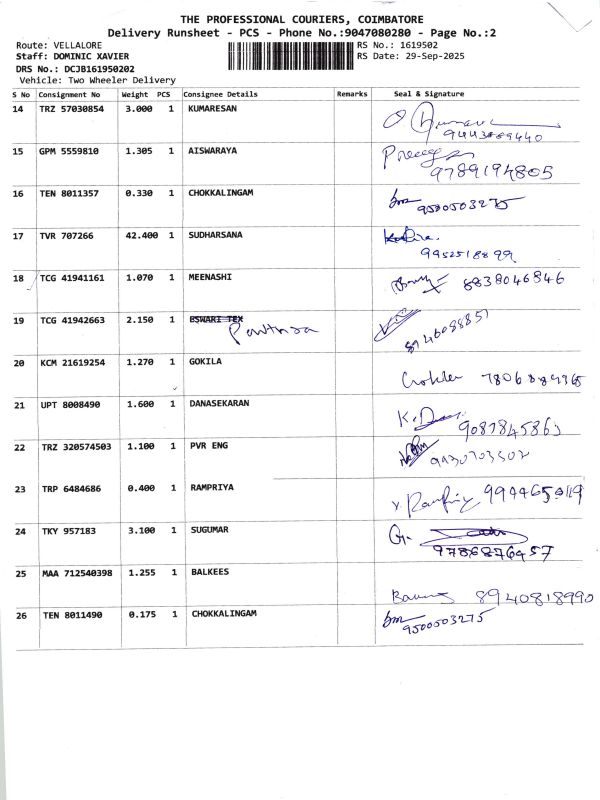 THE PROFESSIONAL COURIERS, COIMBATORE
Delivery Runsheet - PCS - Phone No.:9047080280 - Page No.:2
Route: VELLALORE RS No.: 1619502
Staff: DOMINIC XAVIER RS Date: 29-Sep-2025
DRS No.: DCJB161950202
Vehicle: Two Wheeler Delivery
S No Consignment No Weight PCS Consignee Details Remarks Seal & Signature
14 TRZ 57030854 3.000 1 KUMARESAN
15 GPM 5559810 1.305 1 AISWARAYA
9789194805
16 TEN 8011357 0.330 1 CHOKKALINGAM
9500503275
17 TVR 707266 42.400 1 SUDHARSANA
18 TCG 41941161 1.070 1 MEENASHI
8838046846
19 TCG 41942663 2.150 1 ESWARI TEX
20 KCM 21619254 1.270 1 GOKILA
21 UPT 8008490 1.600 1 DANASEKARAN
22 TRZ 320574503 1.100 1 PVR ENG
23 TRP 6484686 0.400 1 RAMPRIYA
24 TKY 957183 3.100 1 SUGUMAR
9786876457
25 MAA 712540398 1.255 1 BALKEES
8940818990
26 TEN 8011490 0.175 1 CHOKKALINGAM
9500503275